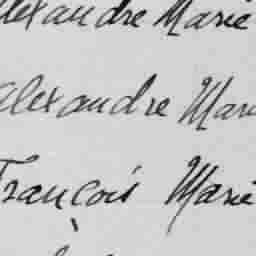 Alexandre Marie
Alexandre Mari
François Marie